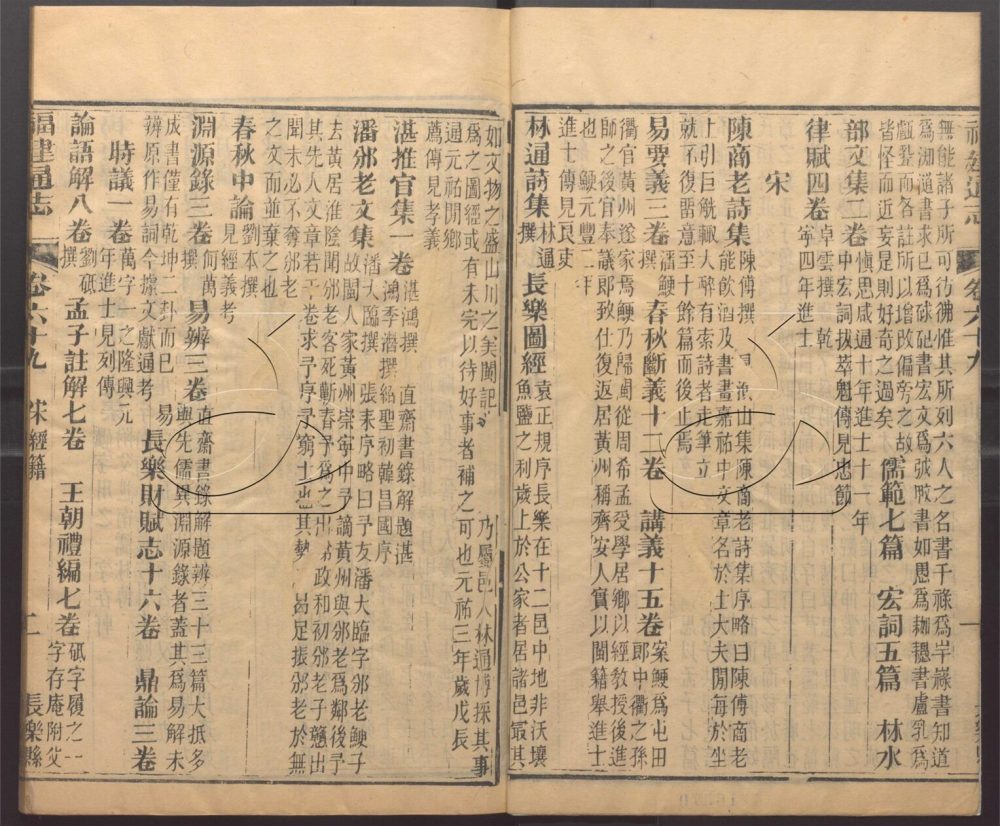 無能諸子所可彷彿惟其所列六人之名書千祿為岸嶽書知道
為洳𨗿書求已為硠砨書宏文為誠敢書如思為耞耰書盧乳為
戲鍳而各註所以增改偏旁之故 儒範七篇 宏詞五篇 林水
皆怪而近妄是則好奇之過矣
部文集二卷慎思咸通十年進士十一年
中宏詞拔萃魁傳見忠節
律賦四卷卓雲撰 乾
寧四年進士
宋
陳商老詩集陳傅撰 山集陳商老詩集序略曰陳傅商老
能飲酒及書畫嘉祐中文章名於士大夫閒每於坐
上引巨觥輒大醉有索詩者走筆立
就不復畱意至十餘篇而後止焉
易要義三卷潘鯁撰 春秋斷義十二卷 講義十五卷案鯁為屯田
郎中衢之孫
衢官黃州遂家焉鯁乃歸閩從周希孟受學居鄉以經教授後進
師之後官奉議郎致仕復返居黃州稱齊安人實以閩籍舉進士
也 鯁元豐二年
進士傳見良吏
林通詩集林通撰 長樂圖經袁正規序長樂在十二邑中地非沃壤
魚鹽之利歲上於公家者居諸邑最其
如文物之盛山川之美闕記 乃屬邑人林通博採其事
為之圖經或有未完以待好事者補之可也元祐三年歲戊辰
通元祐閒鄉
薦傳見孝義
湛推官集一卷湛鴻撰 直齋書錄解題湛
鴻季潛撰紹聖初韓昌國序
潘邠老文集潘大臨撰 張耒序略曰予友潘大臨字邠老鯁子
故閩人家黃州崇寧中予謫黃州與邠老為鄰後予
去黃居淮陰聞邠老客死蘄春予為之出 政和初邠老子戇出
其先人文章若干卷求予序予窮士也其勢 曷足振邠老於無
聞未必不奪邠老
之文而並棄之也
春秋中論劉本撰
見經義考
淵源錄三卷何萬撰 易辨三卷直齋書錄解題辨三十三篇大抵多
與先儒異淵源錄者蓋其為易解未
成書僅有乾坤二卦而已 易
辨原作易詞今據文獻通考 長樂財賦志十六卷 鼎論三卷
時議一卷萬字一之隆興元
年進士見列傳
論語解八卷劉砥撰 孟子註解七卷 王朝禮編七卷砥字履之一
字存庵附父
福建通志 卷六十九 宋經籍 二 長樂縣